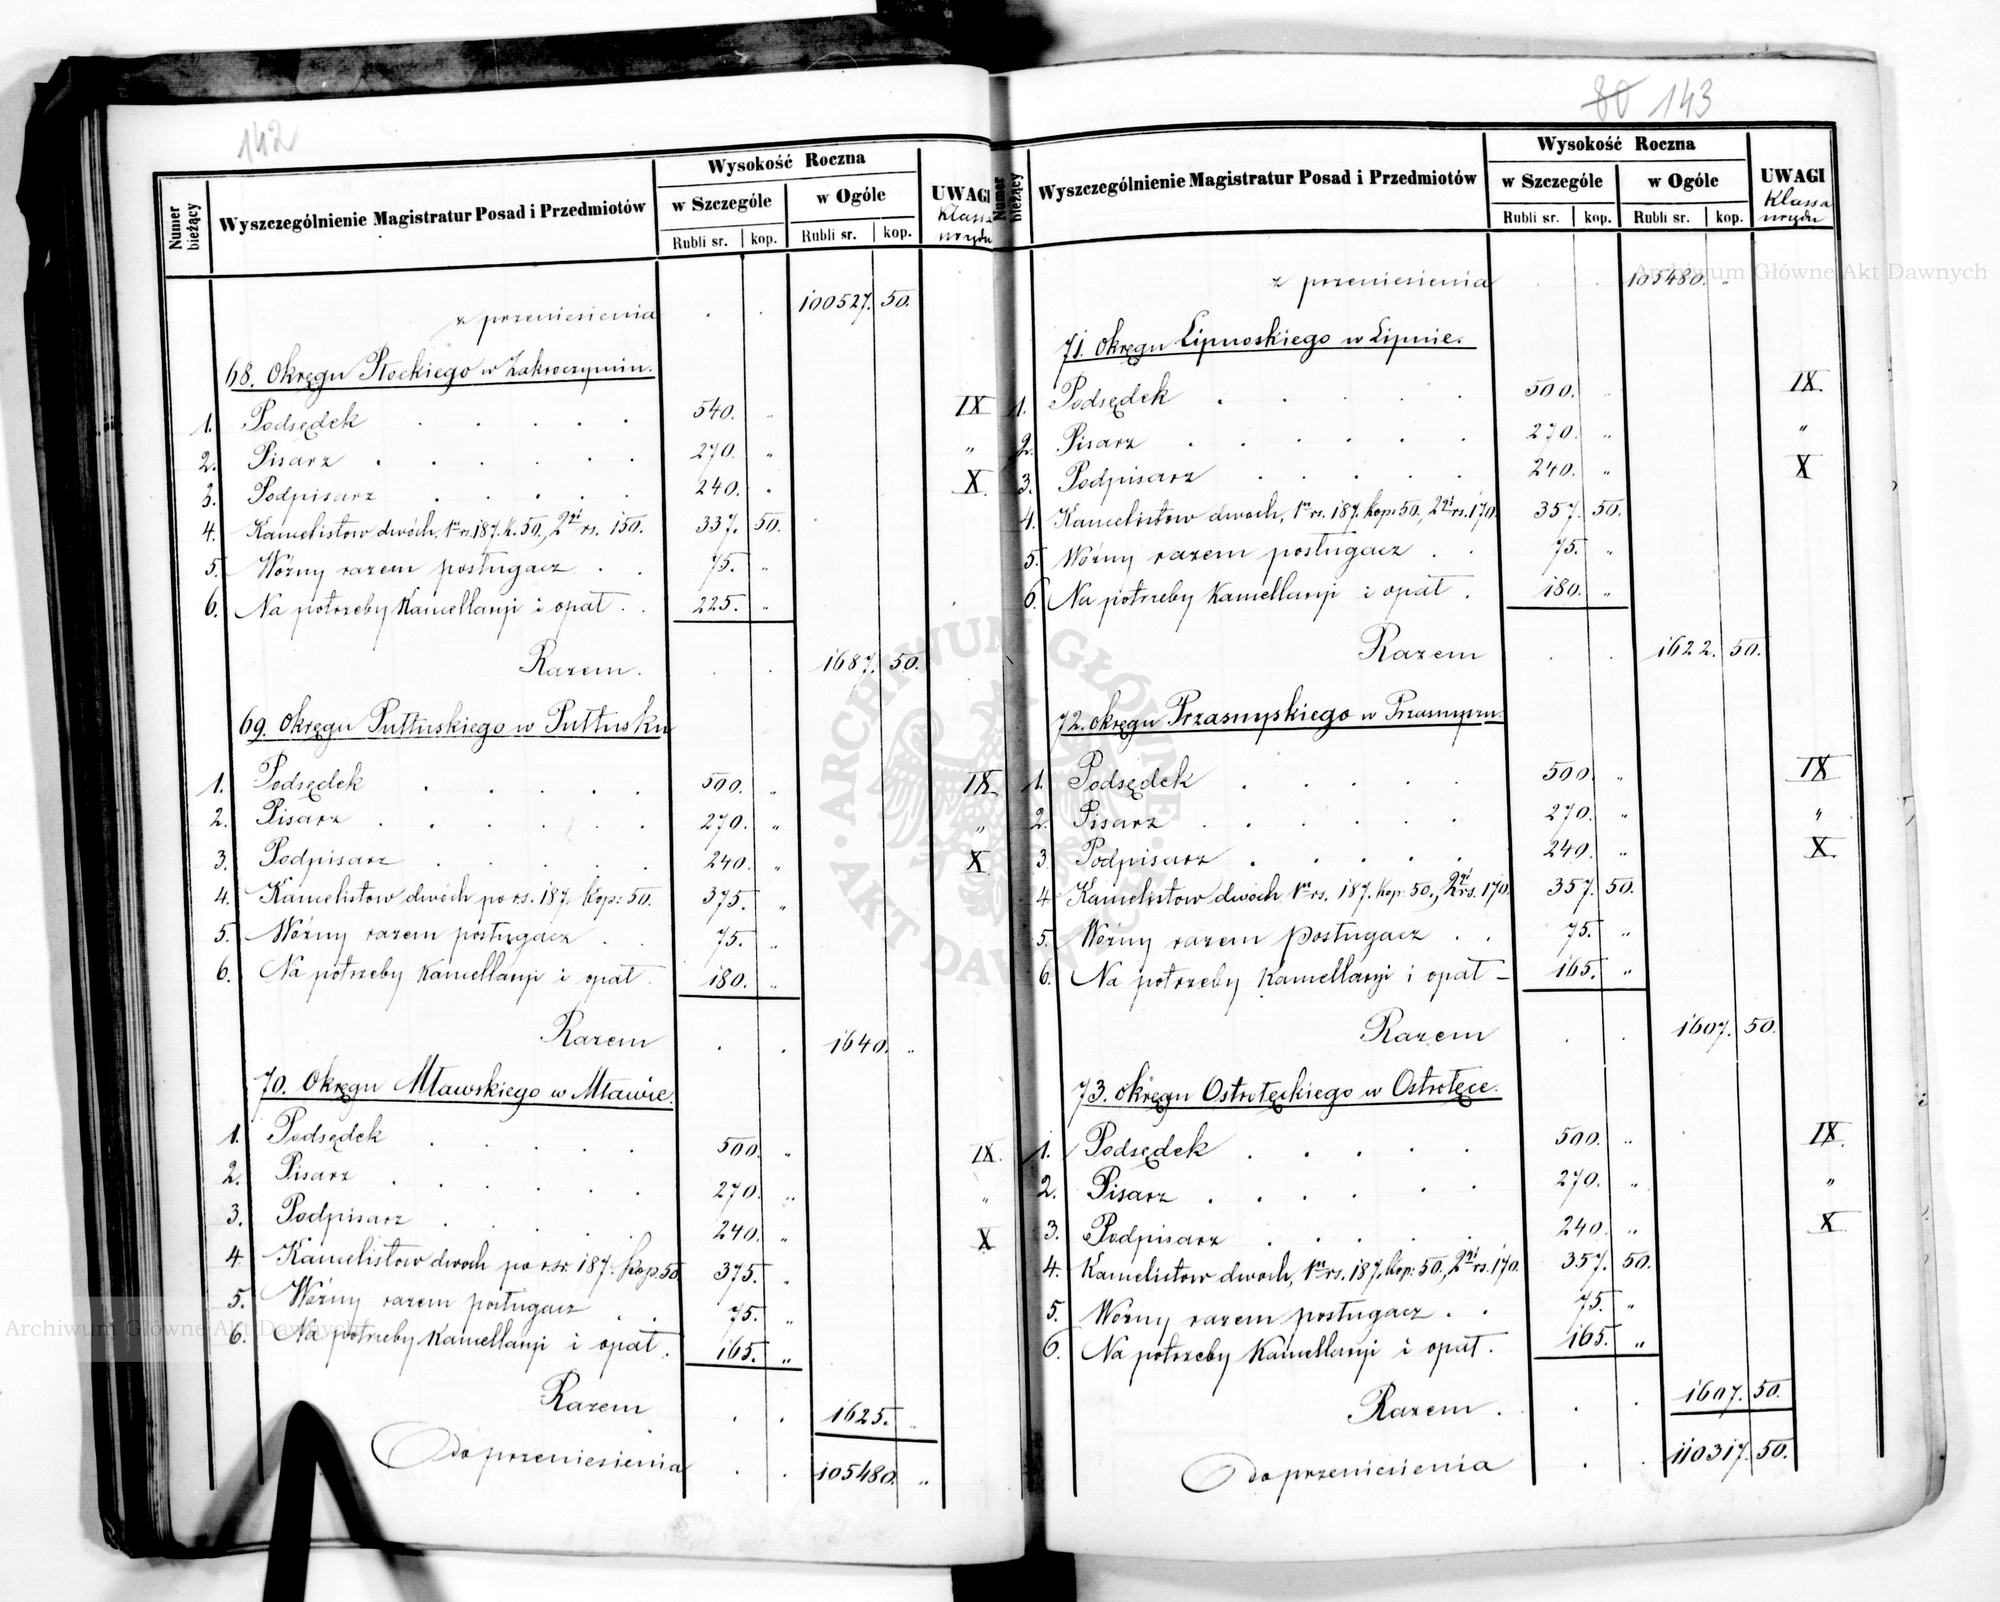 142
Numer bieżący | Wyszczególnienie Magistratur Posad i Przedmiotów | Wysokość Roczna | UWAGI
w Szczególe | w Ogóle | Klassa urzędu
Rubli sr. | kop. | Rubli sr. | kop.
z przeniesienia . . 100527. 50.
68. Okręgu Płockiego w Zakroczymiu.
1. Podsędek . . . . . 540. „ IX
2. Pisarz . . . . . . 270. „ „
3. Podpisarz . . . . . 240. „ X.
4. Kancelistów dwóch, 1n rs. 187. k. 50., 2gi rs. 150. 337. 50.
5. Wóźny razem posługacz . . 75. „
6. Na potrzeby Kancellarji i opał . . 225. „
Razem . . . 1687. 50.
69. Okręgu Pułtuskiego w Pułtusku
1. Podsędek . . . . . 500. „ IX.
2. Pisarz . . . . . . 270. „ „
3. Podpisarz . . . . . 240. „ X
4. Kancelistów dwóch po rs. 187. kop: 50. 375. „
5. Wóźny razem posługacz . . 75. „
6. Na potrzeby Kancellarji i opał . 180. „
Razem . . 1640. „
70. Okręgu Mławskiego w Mławie.
1. Podsędek . . . . . 500. „ IX.
2. Pisarz . . . . . . 270. „ „
3. Podpisarz . . . . . 240. „ X
4. Kancelistów dwóch po rsr. 187. kop. 50 375. „
5. Wóźny razem posługacz . . 75. „
6. Na potrzeby Kancellarji i opał . 165. „
Razem . . 1625. „
Do przeniesienia . . 105480. „
80 143
Numer bieżący | Wyszczególnienie Magistratur Posad i Przedmiotów | Wysokość Roczna | UWAGI
w Szczególe | w Ogóle | Klassa urzędu
Rubli sr. | kop. | Rubli sr. | kop.
z przeniesienia . . 105480. „
71. Okręgu Lipnoskiego w Lipnie.
1. Podsędek . . . . . 500. „ IX.
2. Pisarz . . . . . . 270. „ „
3. Podpisarz . . . . . 240. „ X
4. Kancelistów dwóch, 1n rs. 187. kop: 50., 2gi rs. 170. 357. 50.
5. Wóźny razem posługacz . . 75. „
6. Na potrzeby Kancellarji i opał . 180. „
Razem . . 1622. 50.
72. Okręgu Przasnyskiego w Przasnyszu.
1. Podsędek . . . . . 500. „ IX
2. Pisarz . . . . . . 270. „ „
3. Podpisarz . . . . . 240. „ X.
4. Kancelistów dwóch 1n rs. 187. kop: 50., 2gi rs. 170. 357. 50.
5. Wóźny razem posługacz . . 75. „
6. Na potrzeby Kancellarji i opał – 165. „
Razem . . 1607. 50.
73. Okręgu Ostrołęckiego w Ostrołęce.
1. Podsędek . . . . . 500. „ IX.
2. Pisarz . . . . . . 270. „ „
3. Podpisarz . . . . . 240. „ X
4. Kancelistów dwóch, 1n rs. 187. kop: 50., 2gi rs. 170. 357. 50.
5. Wóźny razem posługacz . . 75. „
6. Na potrzeby Kancellarji i opał . 165. „
Razem . . . 1607. 50.
Do przeniesienia . . 110317. 50.
Archiwum Główne Akt Dawnych
Archiwum Główne Akt Dawnych
ARCHIWUM GŁÓWNE • AKT DAWNYCH •